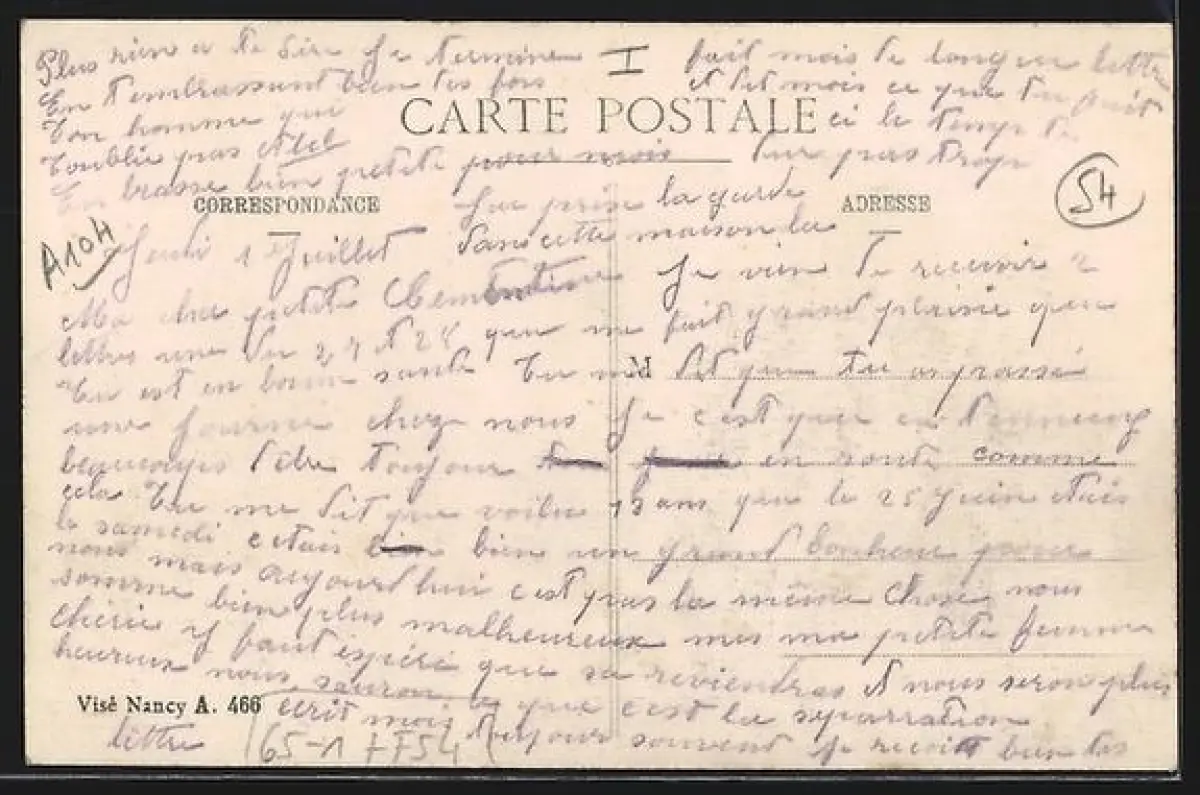 Plus rien a te dire Je termine
En t'embrassant bien des fois
Ton homme qui
t'oublie pas
Embrasse bien petite pour mois
I
fait mois de longue lettre
et dit mois ce que tu fait
ci le temps te
dur pas trop
CARTE POSTALE
CORRESPONDANCE
ADRESSE
54
A104
J'ai pris la garde
dans cette maison la
Jeudi 1 Juillet
Ma cher petite Clementine Je vien de recevoir 2
lettres une du 24 et 28 que me fait grand plaisir que
tu est en bonne santé Tu me dit que tu as passé
M
une journée chez nous Je c'est que en t'ennuez
beaucoups d'être toujour en route comme
cela Tu me dit que voila 13 ans que le 25 Juin etais
le samedi cetais bien un grand bonheur pour
nous mais aujourd'hui c'est pas la même chose nous
somme bien plus malheureux mes ma petite femme
chérie y faut espéré que sa reviendras et nous seron plus
heureux nous sauron ce que c'est la separration
Visé Nancy A. 466
ecrit mois toujour souvent Je recoit bien tes
lettre
65-1 7754